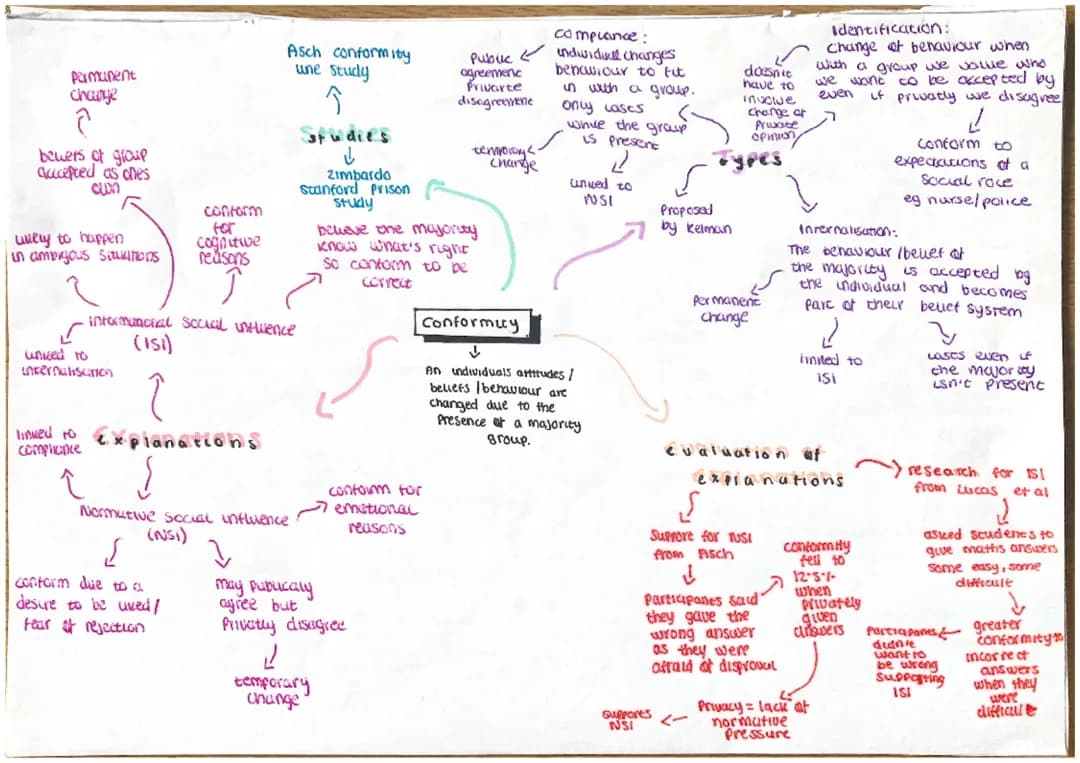 Conformity
An individuals attitudes /
beliefs / behaviour are
changed due to the
presence of a majority
group.
Studies
Asch conformity
line study
Zimbardo
Stanford Prison
Study
Types
Proposed
by Kelman
compliance:
individual changes
behaviour to fit
in with a group.
only lasts
while the group
is present
Public
agreement
Private
disagreement
temporary
change
linked to
NSI
Identification:
change of behaviour when
with a group we value who
we want to be accepted by
even if privatly we disagree
doesn't
have to
involve
change of
private
opinion
conform to
expectations of a
social role
eg nurse/police
Internalisation:
The behaviour/belief of
the majority is accepted by
the individual and becomes
part of their belief system
Permanent
change
linked to
ISI
lasts even if
the majority
isn't present
Explanations
Informational Social Influence
(ISI)
linked to
internalisation
likely to happen
in ambigous situations
beliefs of group
accepted as ones
own
permanent
change
conform
for
cognitive
reasons
believe the majority
know what's right
so conform to be
correct
Normative Social Influence
(NSI)
linked to
compliance
conform for
emotional
reasons
conform due to a
desire to be liked/
fear of rejection
may publically
agree but
Privatly disagree
temporary
change
Evaluation of
explanations
Support for NSI
from Asch
Participants said
they gave the
wrong answer
as they were
afraid of disproval
conformity
fell to
12.5%
when
privately
given
answers
Privacy = lack of
normative
pressure
supports
NSI
research for ISI
from Lucas et al
asked students to
give maths answers
some easy, some
difficult
greater
conformity to
incorrect
answers
when they
were
difficult
Participants
didn't
want to
be wrong
supporting
ISI